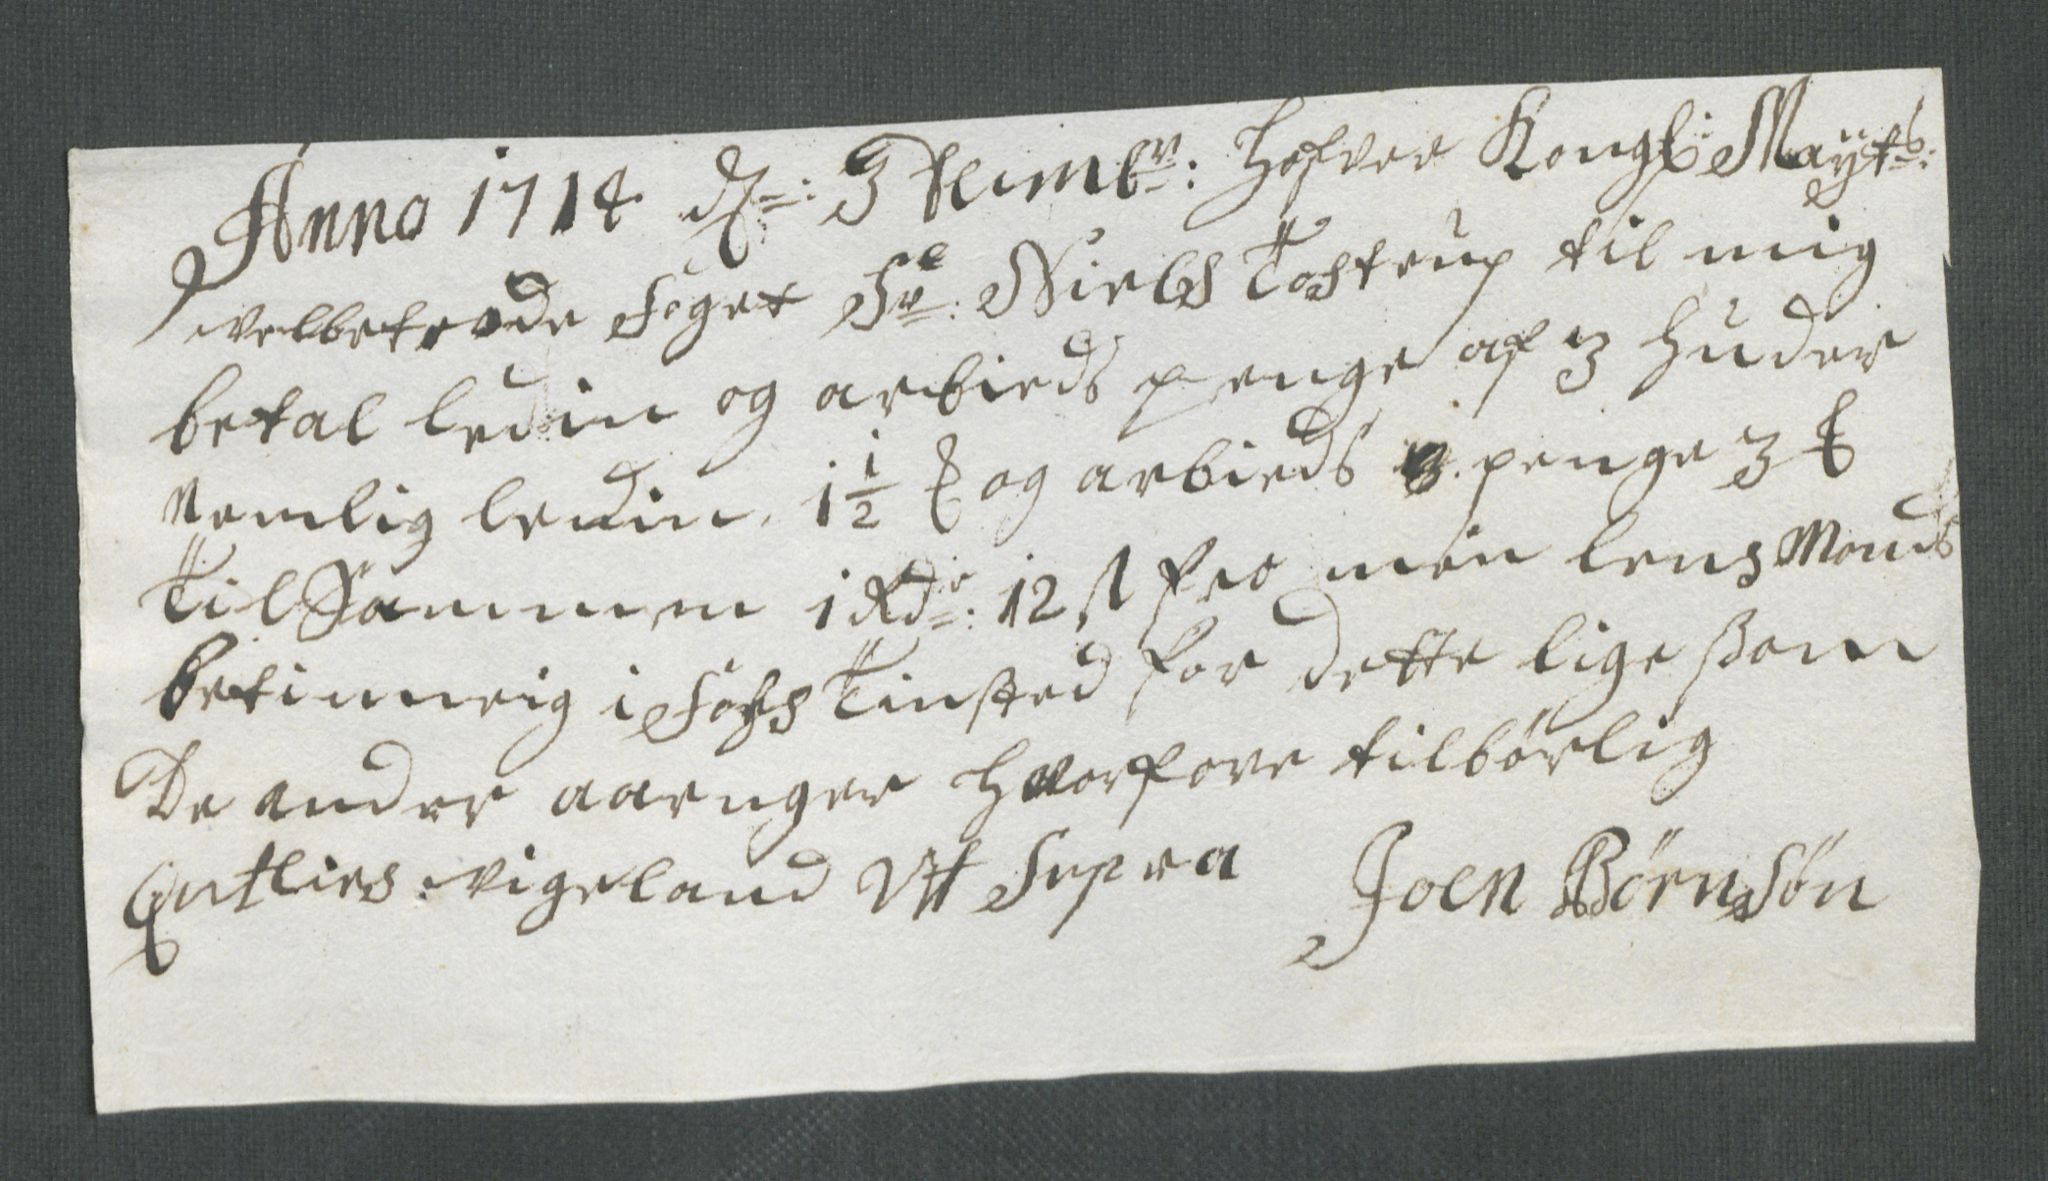 Anno 1714 dn: 3 Novembr: hafver Kongl: Mayts:
velbetrode Foget Sr: Niels Tostrup til mig
betal ledin og arbieds penge af 3 huder
Nemlig ledin. 1 1/2 og arbieds penge 3
Til Sammen 1 Rdr: 12 s fra min lens Mands
betinnig i Fohs Tinsted for dette lige som
De ander aaringer hvorfore tilbørlig
Qvitlies. Vigeland Ut Supra Joen Børnsøn